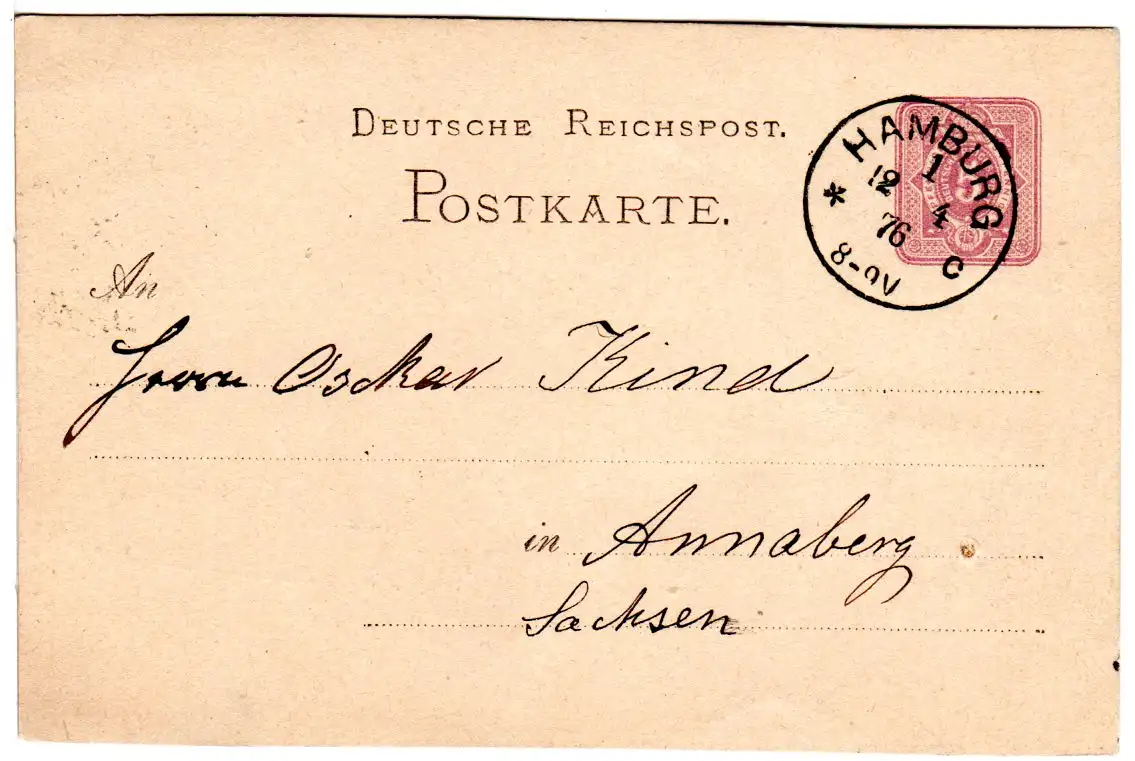 DEUTSCHE REICHSPOST.
POSTKARTE.
HAMBURG
1
12 4
76
8-9V
C
An
Herrn Osckar Kind
in Annaberg
Sachsen